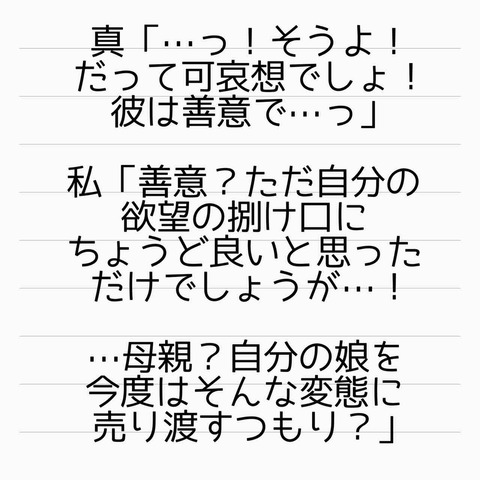 真「…っ！そうよ！
だって可哀想でしょ！
彼は善意で…っ」
私「善意？ただ自分の
欲望の捌け口に
ちょうど良いと思った
だけでしょうが…！
…母親？自分の娘を
今度はそんな変態に
売り渡すつもり？」